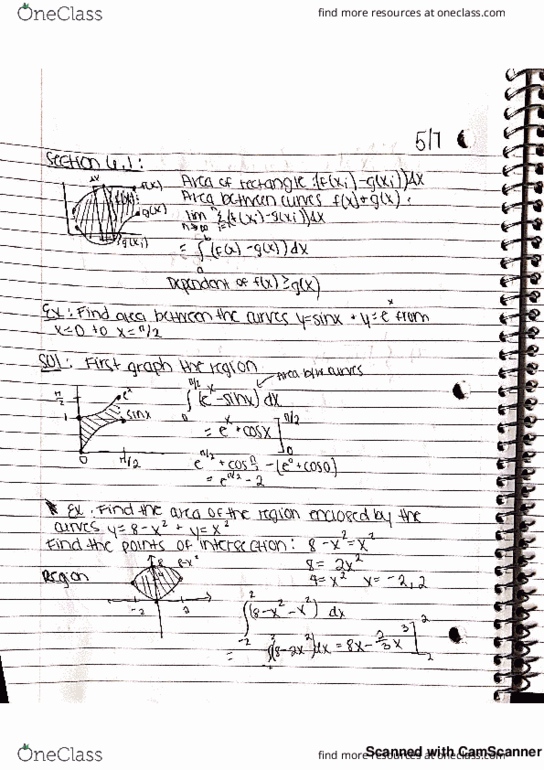 OneClass find more resources at oneclass.com
5/7
Section 6.1:
f(x) Area of rectangle: (f(xi)-g(xi))Δx
g(x) Area between curves f(x)+g(x):
g(xi) lim n→∞ Σ i=1 n (f(xi)-g(xi))Δx
= ∫ a b (f(x)-g(x))dx
Dependent of f(x)≥g(x)
Ex: Find area between the curves y=sinx + y=e^x from
x=0 to x=π/2
Sol: First graph the region
Area b/w curves
∫ 0 π/2 (e^x-sinx)dx
π/2 1 e^x sinx 0 π/2
= e^x+cosx ] 0 π/2
e^π/2+cos π/2 -(e^0+cos0)
= e^π/2-2
* Ex: Find the area of the region enclosed by the
curves y=8-x² + y=x²
Find the points of intersection: 8-x²=x²
8=2x²
4=x² x=-2,2
Region 8 8-x² -2 2
∫ -2 2 (8-x²-x²) dx
= ∫(8-2x²)dx = 8x-2/3x³ ] 2
OneClass find more resources at oneclass.com
Scanned with CamScanner